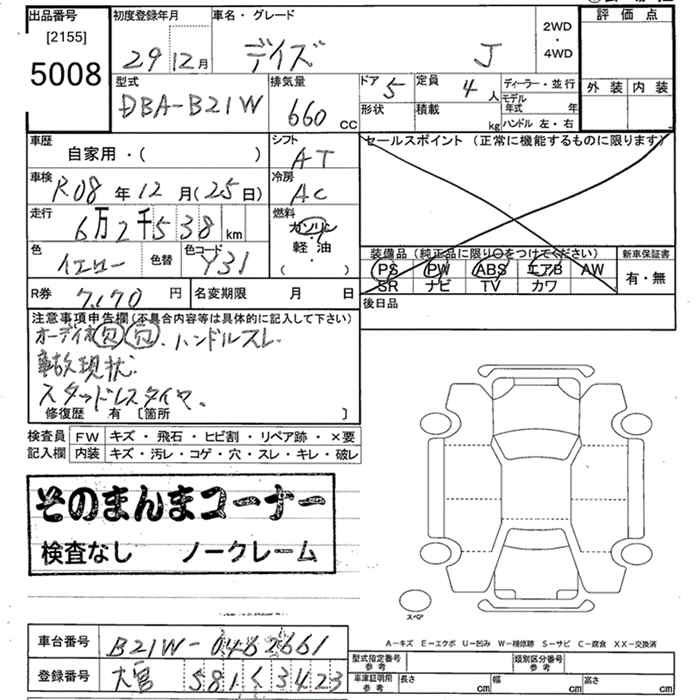 出品番号 初度登録年月 車名・グレード 評価点
[2155]
5008
29 12月 デイズ J 2WD・4WD
型式 排気量 ドア 5 定員 4人 ディーラー・並行 外装 内装
DBA-B21W 660 CC 形状 積載 kg モデル年式 年
ハンドル 左・右
車歴 シフト セールスポイント (正常に機能するものに限ります)
自家用・( ) AT
車検 冷房
R08年12月(25日) AC
走行 燃料
6万2千538km ガソリン・軽油
( )
色 色替 色コード 装備品 (純正品に限り○をつけてください) 新車保証書
イエロー Y31 PS PW ABS エアB AW 有・無
SR ナビ TV カワ
R券 7,170円 名変期限 月 日 後日品
注意事項申告欄(不具合内容等は具体的に記入して下さい)
オーディオ穴 穴. ハンドルスレ.
事故現状.
スタッドレスタイヤ.
修復歴 有 [箇所 ]
検査員 FW キズ・飛石・ヒビ割・リペア跡・×要
記入欄 内装 キズ・汚レ・コゲ・穴・スレ・キレ・破レ
そのまんまコーナー
検査なし ノークレーム
スペア
A-キズ E-エクボ U-凹み W-補修跡 S-サビ C-腐食 XX-交換済
車台番号 B21W-0482661
型式指定番号 参考 類別区分番号 参考
登録番号 大宮 581く3423
車庫証明用 参考 長さ cm 幅 cm 高さ cm